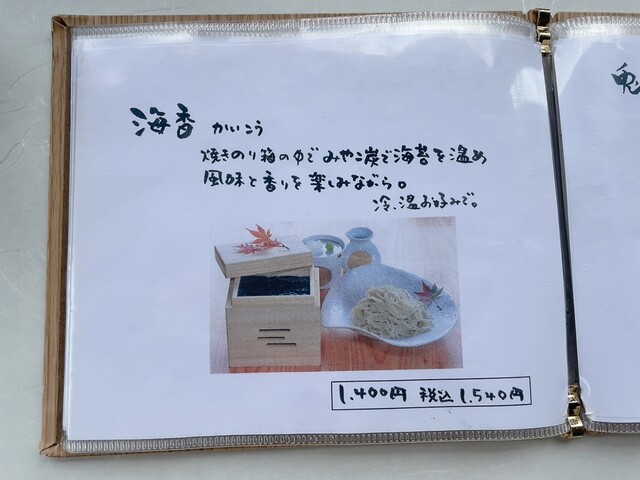 海香 かいこう
焼きのり箱の中でみやこ炭で海苔を温め
風味と香りを楽しみながら。
冷、温お好みで。
1,400円 税込1,540円